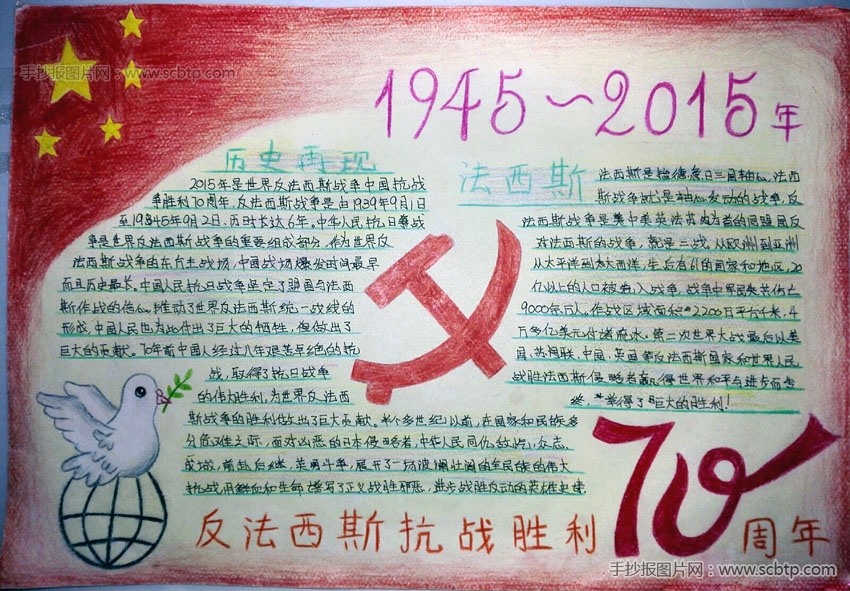 手抄报图片网：www.scbtp.com
1945～2015年
历史再现
2015年是世界反法西斯战争中国抗战
争胜利70周年,反法西斯战争是由1939年9月1日
至19845年9月2日,历时长达6年。中华人民抗日战
争是世界反法西斯战争的重要组成部分,作为世界反
法西斯战争的东方主战场,中国战场爆发时间最早
而且历史最长。中国人民抗日战争坚定了盟国与法西
斯作战的信心,推动了世界反法西斯统一战线的
形成,中国人民也为此付出了巨大的牺牲,但做出了
巨大的贡献。70年前中国人经过八年艰苦卓绝的抗
战,取得了抗日战争
的伟大胜利,为世界反法西
斯战争的胜利做出了巨大贡献。半个多世纪以前,在国家和民族多
分危难之际,面对凶恶的日本侵略者,中华人民同仇敌忾,众志
成城,前赴后继,英勇斗争,展开了一场波澜壮阔的全民族的伟大
抗战,用鲜血和生命谱写了正义战胜邪恶,进步战胜反动的英雄史集
法西斯
法西斯是指德意日三国轴心,法西
斯战争就是轴心发动的战争,反
法西斯战争是集中美英法苏为首的同盟国反
对法西斯的战争,就是二战,从欧洲到亚洲
从太平洋到大西洋,先后有61的国家和地区,20
亿以上的人口被卷入战争,战争中军民共伤亡
9000余万人,作战区域面积2200万平方千米,4
万多亿美元付诸流水。第二次世界大战最后以美
国,苏联,中国,英国等反法西斯国家和世界人民
战胜法西斯侵略者赢得世界和平与进步而告
终,赢得了巨大的胜利!
反法西斯抗战胜利70周年
手抄报图片网：www.scbtp.com